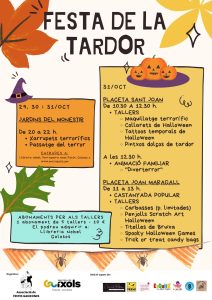 FESTA DE LA
TARDOR
29, 30 i 31/OCT
JARDINS DEL MONESTIR
De 20 a 22 h.
• Xurrupets terrorífics
• Passatge del terror
ABONAMENTS PER ALS TALLERS
1 abonament de 5 tallers - 10 €
El podreu adquirir a:
31/OCT
PLACETA SANT JOAN
De 10.30 a 12.30 h.
• TALLERS
Maquillatge terrorífic
Collarets de Halloween
Tattoos temporals de
Halloween
Pintxos dolços de tardor
A les 12.30 h.
• ANIMACIÓ FAMILIAR
"Diverterror"
PLACETA JOAN MARAGALL
De 11 a 13 h.
• CASTANYADA POPULAR
• TALLERS
Carbasses (p. limitades)
Penjolls Scratch Art
Halloween
Titelles de Bruixa
Spooky Halloween Games
Trick or treat candy bags
Guíxols